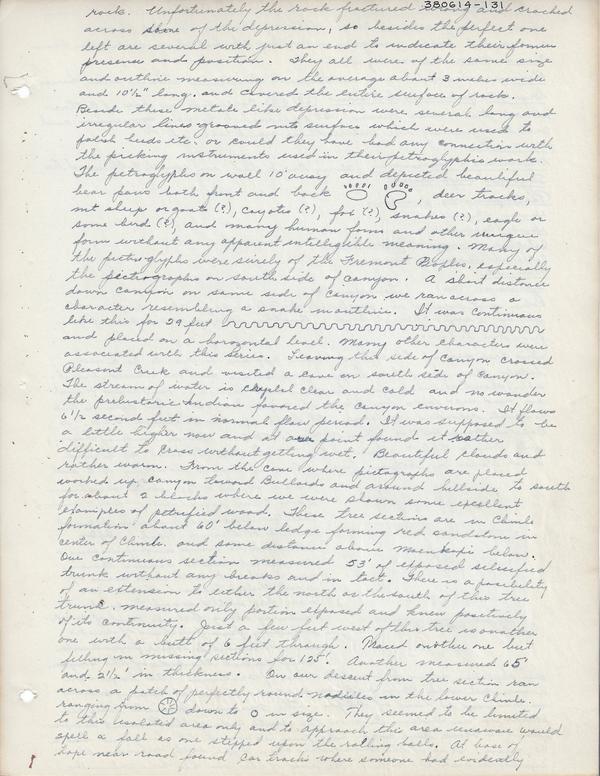 380614-131
rock. Unfortunately the rock fractured along and cracked
across some of the depression, so besides the perfect one
left are several with just an end to indicate their former
presence and position. They all were of the same size
and outline measuring on the average about 3 inches wide
and 10 1/2" long. and covered the entire surface of rock.
Beside these metate like depression were several long and
irregular lines grooved into surface which were used to
polish beads etc. or could they have had any connection with
the picking instruments used in their petroglyphic work.
The petroglyphs on wall 10' away and depicted beautiful
bear paws both front and back , deer tracks,
mt sheep or goats (?), coyotes (?), fox (?), snakes (?), eagle or
some bird (?), and many human forms and other unique
form without any apparent intelligible meaning. Many of
the pictroglyphs were surely of the Fremont Peoples, especially
the pictrographs on south side of canyon. A short distance
down canyon on same side of canyon we ran across a
character resembling a snake in outline. It was continuous
like this for 29 feet
and placed on a horozontal level. Many other characters were
associated with this series. Leaving this side of canyon crossed
Pleasant Creek and visited a cave on south side of canyon.
The stream of water is chrystal clear and cold and no wonder
the prehistoric Indian favored the canyon environs. It flows
6 1/2 second feet in normal flow period. It was supposed to be
a little higher now and at our point found it rather
difficult to cross without getting wet. Beautiful clouds and
rather warm. From the cave where pictographs are placed
worked up canyon toward Bullards and around hillside to south
for about 2 blocks where we were shown some excellent
examples of petrified wood. These tree sections are in Chinle
formation about 60' below ledge forming red sandstone in
center of Chinle and some distance above Moenkopi below.
One continuous section measured 53' of exposed silicified
trunk without any breaks and in tact. There is a possibility
of an extension to either the north or the south of this tree
trunk. measured only portion exposed and knew positively
of its continuity. Just a few feet west of this tree is another
one with a butt of 6 feet through. Maced another one but
filling in missing sections for 125'. Another measured 65'
and 2 1/2' in thickness. On our descent from tree section ran
across a patch of perfectly round nodules in the lower Chinle.
ranging from down to in size. They seemed to be limited
to this isolated area only and to approach this area unaware would
spell a fall as one stepped upon the rolling balls. At base of
slope near road found car tracks where someone had evidently